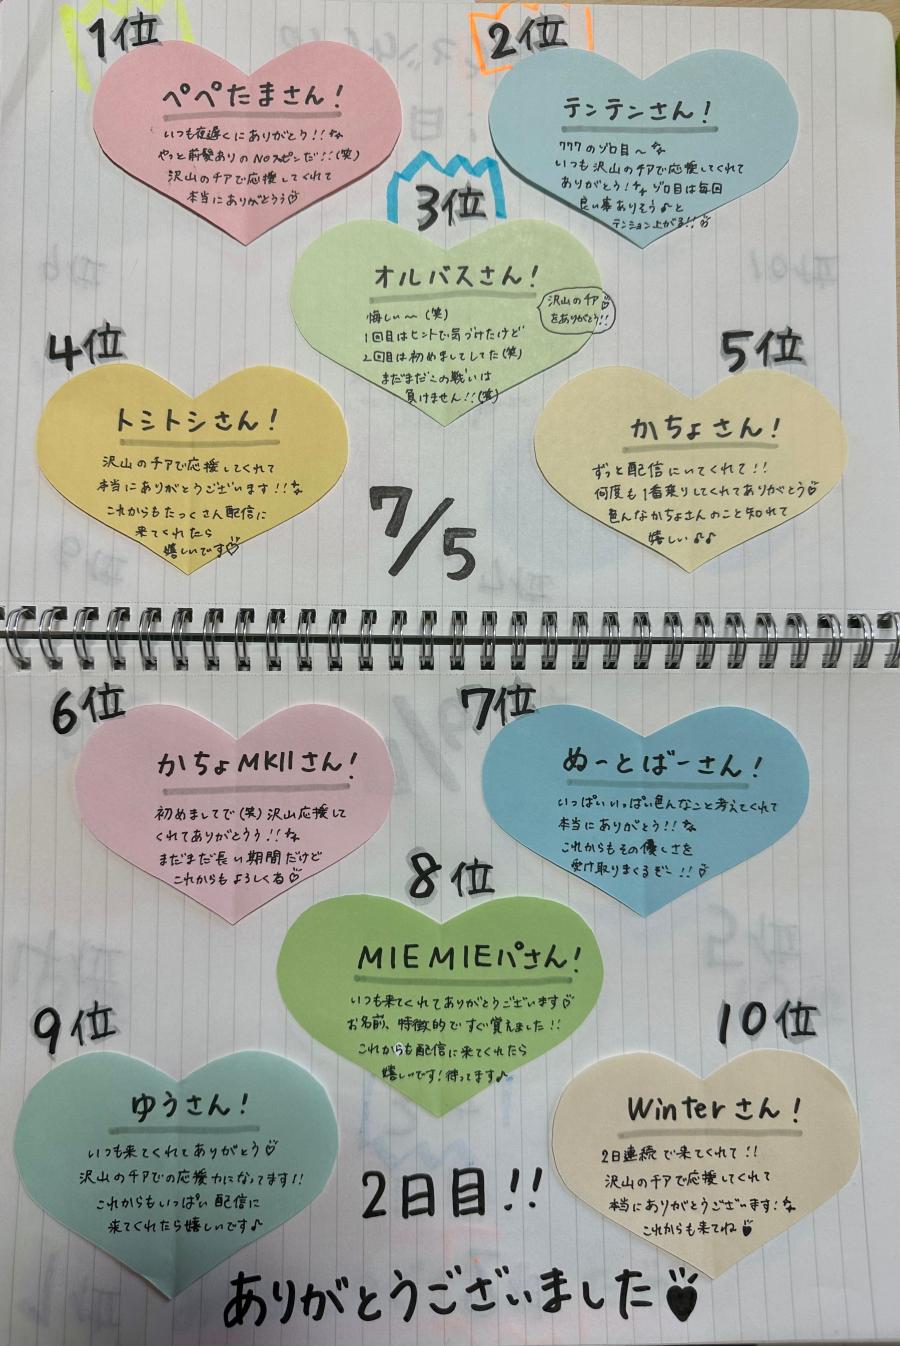 1位
ペペたまさん!
いつも夜遅くにありがとう!!
やっと前髪ありのNoスピンだ!!(笑)
沢山のチアで応援してくれて
本当にありがとうう
2位
テンテンさん!
777のゾロ目〜
いつも沢山のチアで応援してくれて
ありがとう! ゾロ目は毎回
良い事ありそう♪と
テンション上がる!!
3位
オルバスさん!
沢山のチア
をありがとう!!
悔しい〜(笑)
1回目はヒントで気づけたけど
2回目は初めましてしてた(笑)
まだまだこの戦いは
負けません!!(笑)
4位
トシトシさん!
沢山のチアで応援してくれて
本当にありがとうございます!!
これからもたっくさん配信に
来てくれたら
嬉しいです
5位
かちょさん!
ずっと配信にいてくれて!!
何度も1番乗りしてくれてありがとう
色んなかちょさんのこと知れて
嬉しい♪♪
7/5
6位
かちょMKIIさん!
初めましてで(笑)沢山応援して
くれてありがとうう!!
まだまだ長い期間だけど
これからもよろしくね
7位
ぬーとばーさん!
いっぱいいっぱい色んなこと考えてくれて
本当にありがとう!!
これからもその優しさを
受け取りまくるぞー!!
8位
MIE MIEパさん!
いつも来てくれてありがとうございます
お名前、特徴的ですぐ覚えました!!
これからも配信に来てくれたら
嬉しいです!待ってます♪
9位
ゆうさん!
いつも来てくれてありがとう
沢山のチアでの応援力になってます!!
これからもいっぱい配信に
来てくれたら嬉しいです♪
10位
Winterさん!
2日連続で来てくれて!!
沢山のチアで応援してくれて
本当にありがとうございます!
これからも来てね
2日目!!
ありがとうございました